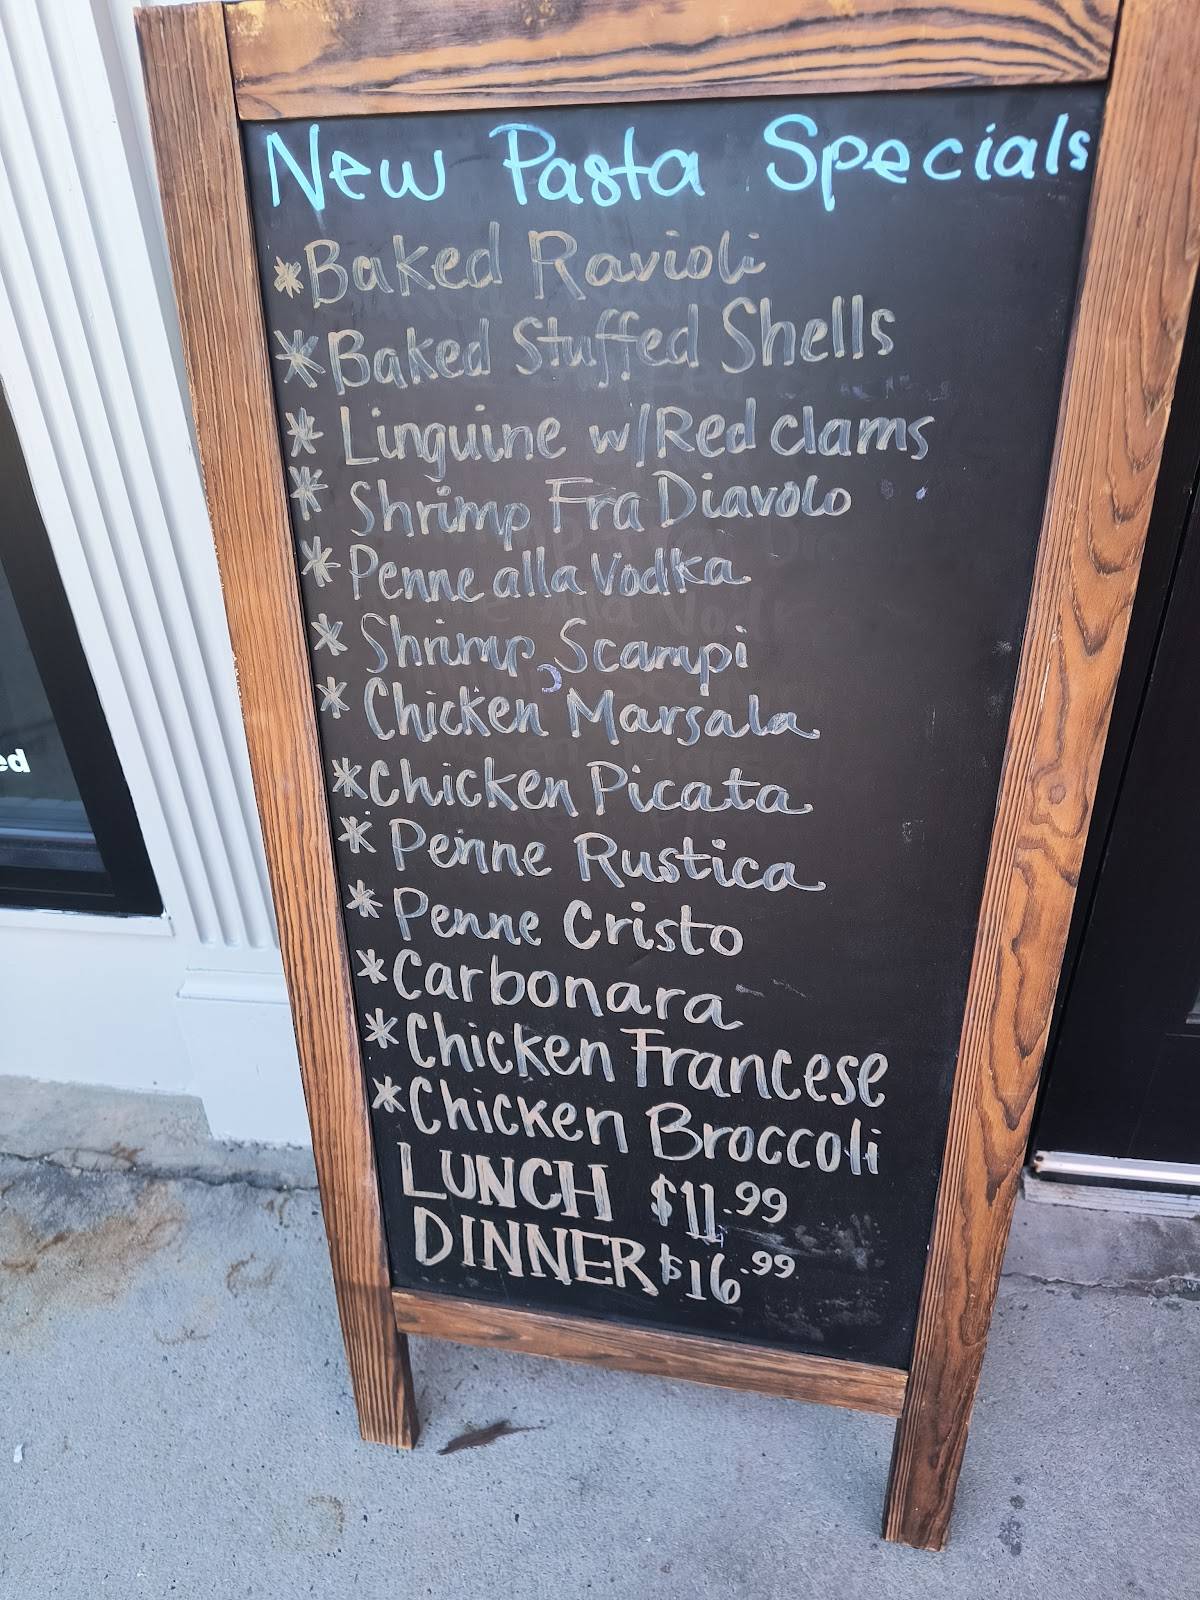 New Pasta Specials
*Baked Ravioli
*Baked Stuffed Shells
* Linguine w/Red clams
* Shrimp Fra Diavolo
* Penne alla Vodka
* Shrimp Scampi
* Chicken Marsala
*Chicken Picata
* Penne Rustica
* Penne Cristo
*Carbonara
*Chicken Francese
*Chicken Broccoli
LUNCH $11.99
DINNER $16.99
ed